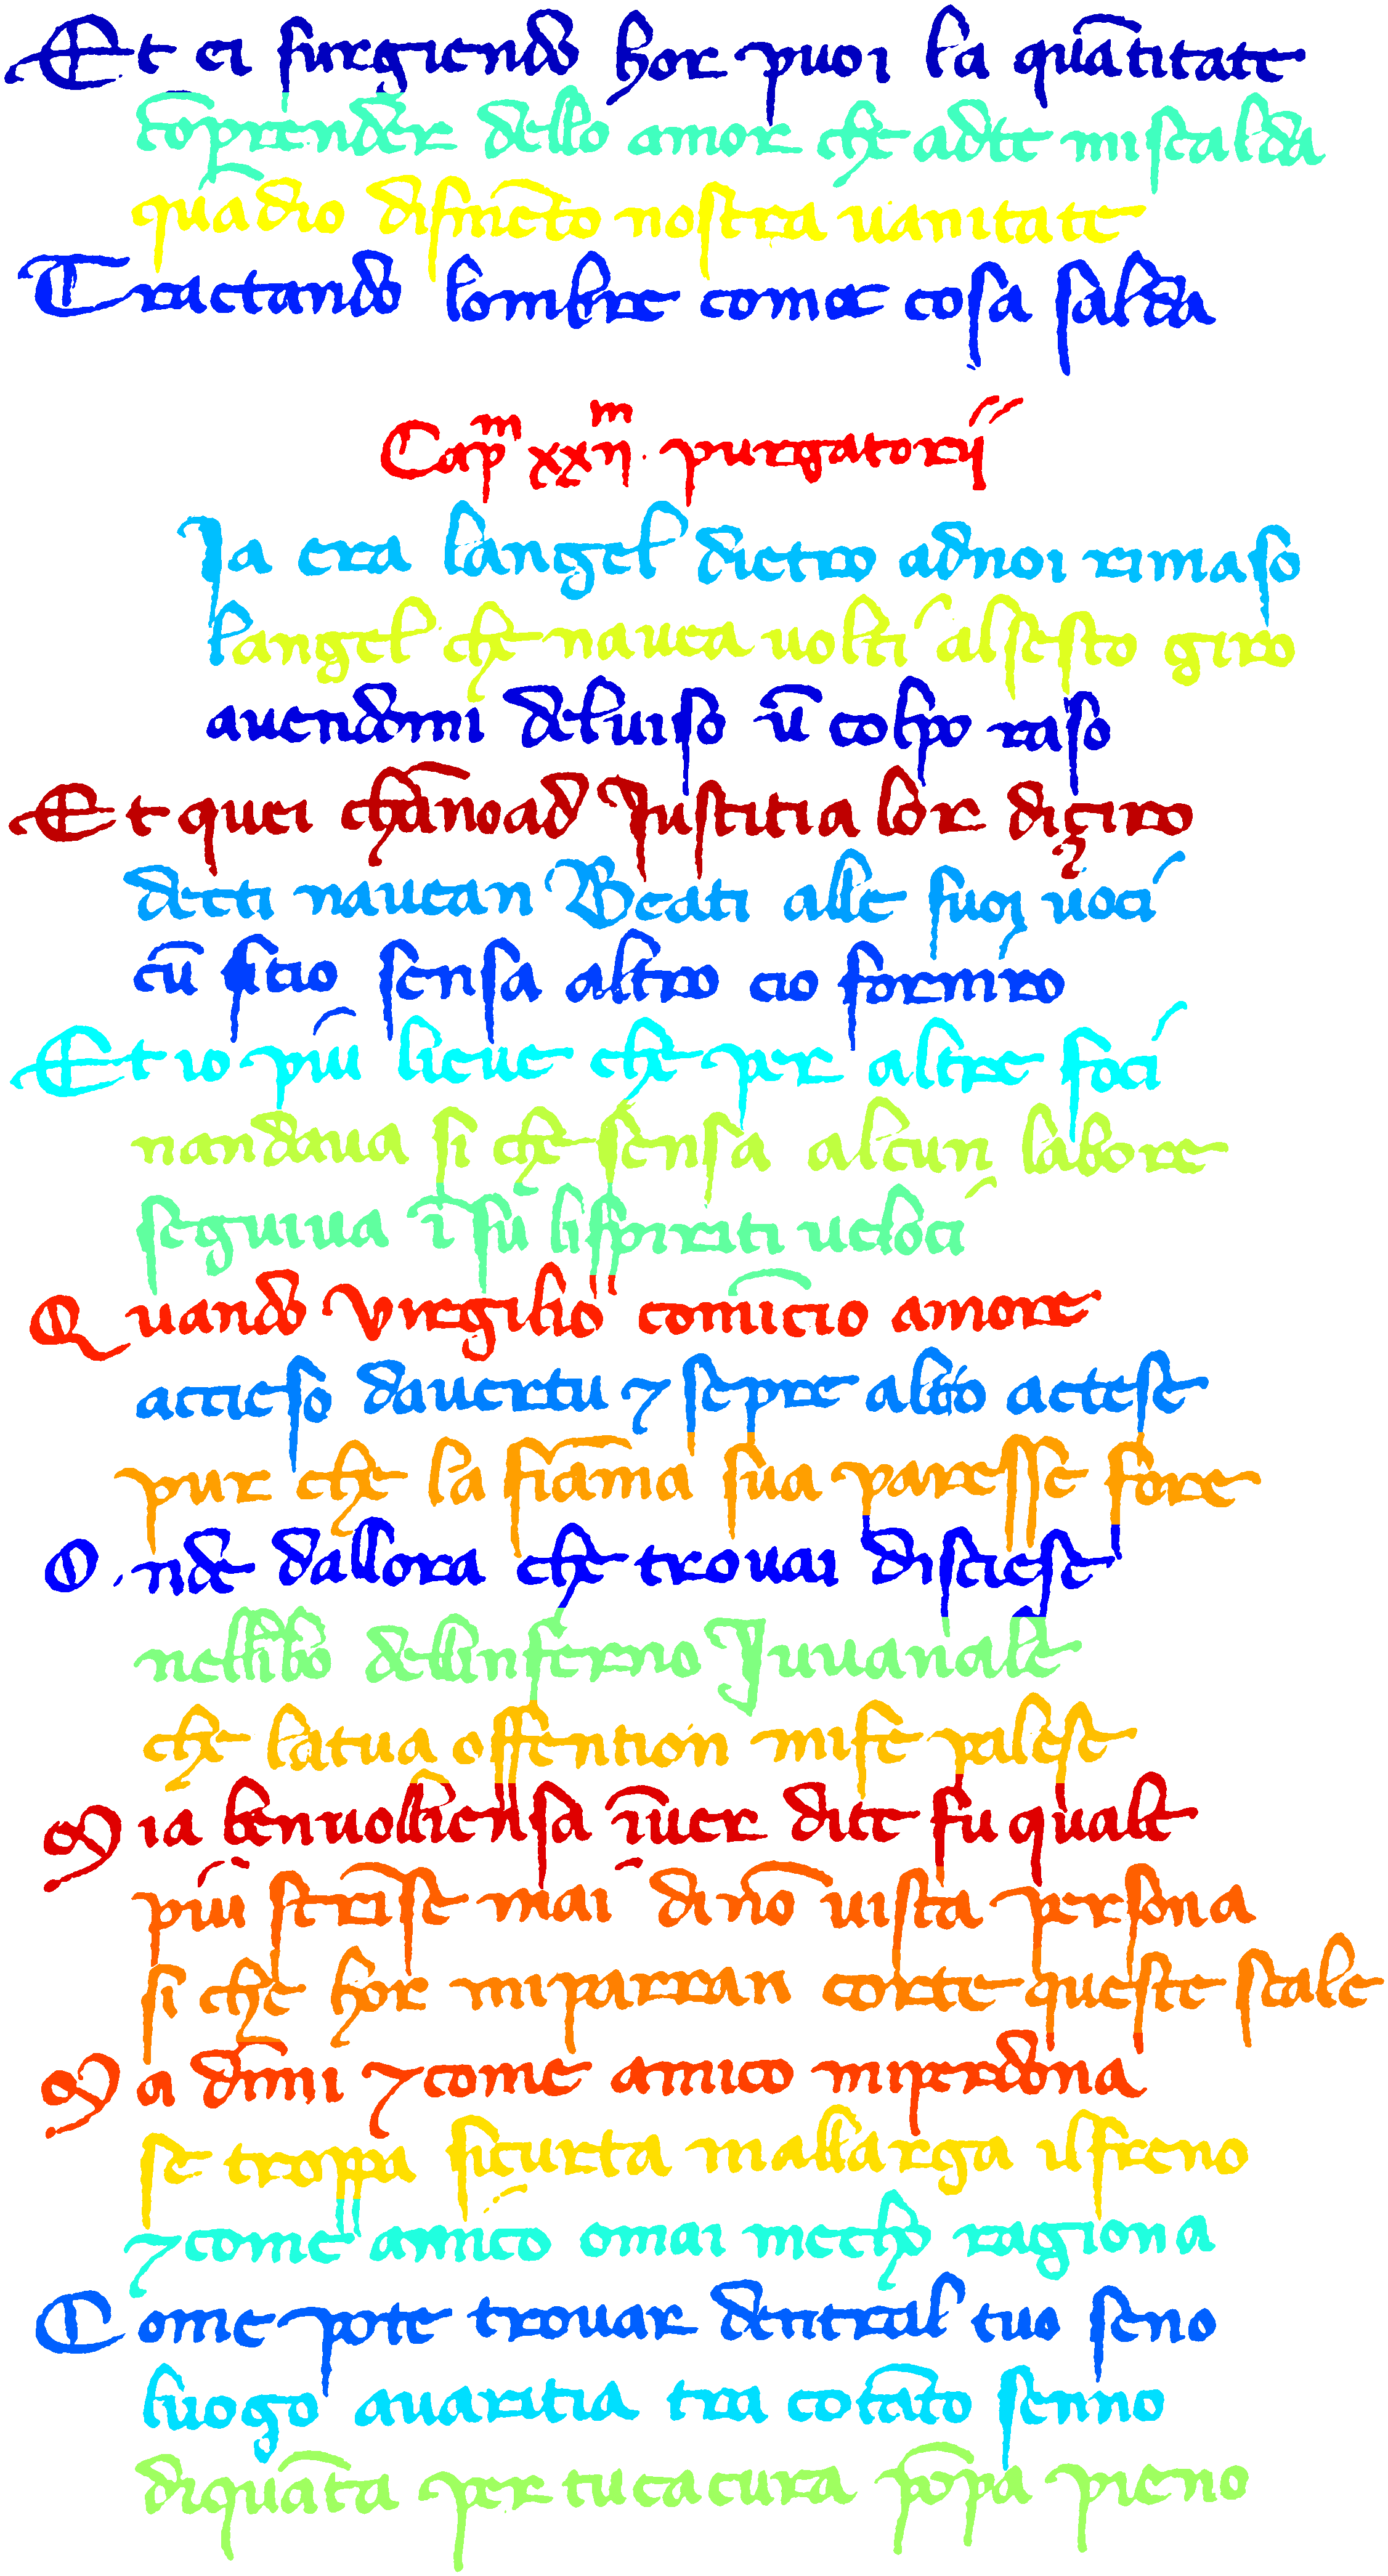 Et ei surgiendo hor puoi la quātitate
cōprender dello amor che adte miscalda
quādio dismēto nostra uanitate
Tractando lombre come cosa salda
Capm xxiim purgatorij
Ia era langel dietro adnoi rimaso
langel che nauea uolti alsesto giro
auendomi deluiso ū colpo raso
Et quei chānoad Justitia lor diçiro
detti nauean Beati alle suoi uoci
cū sitio sensa altro cio forniro
Et io più lieue che per altre foci
nandaua si che sensa alcun labore
seguiua ī su lispiriti ueloci
Quando Virgilio comīcio amore
accieso dauertu ⁊ sepre altro actese
pur che la fiāma sua paresse fore
Onde dallora che trouai disciese
nellībo dellinferno Juuanale
che latua offention mife palese
Mia benuolliensa īuer dite fu quale
più strīse mai dinō uista persona
si che hor miparran corte queste scale
Ma dīmi ⁊come amico miperdona
se troppa sicurta mallarga ilfreno
⁊come amico omai mecho ragiona
Come pote trouar dentral tuo seno
luogo auaritia tra cotāto senno
diquāta per tuca cura pōpa pieno